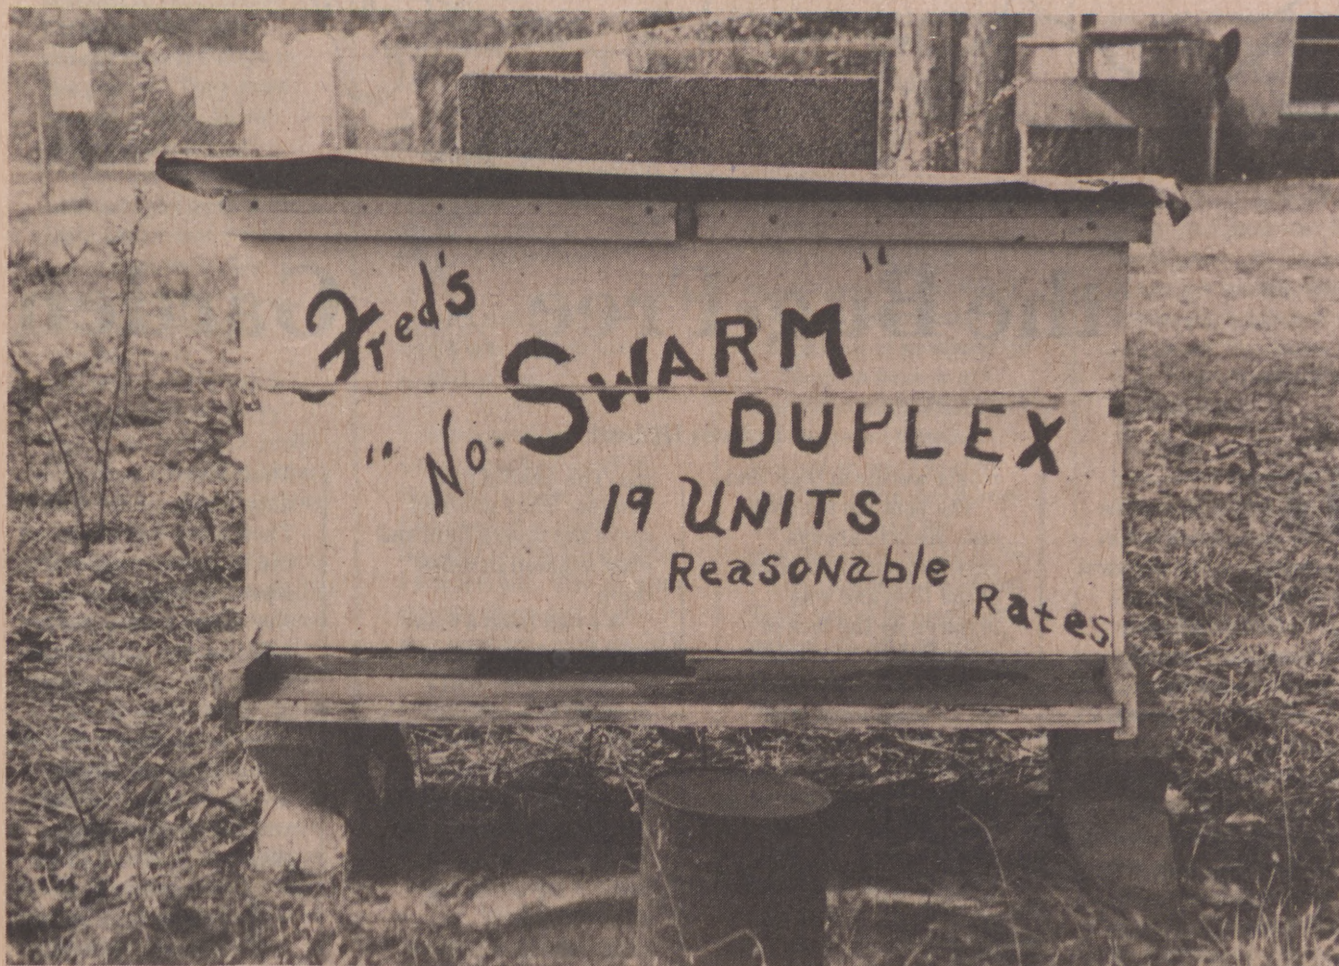 Fred's
"No-SWARM"
DUPLEX
19 UNITS
Reasonable
Rates